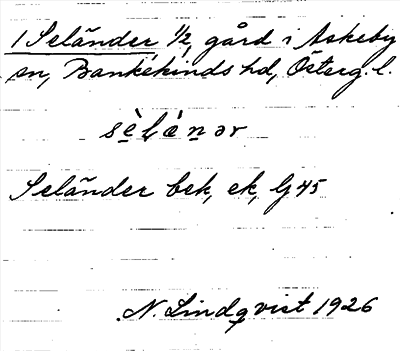 1 Seländer 1/2, gård i Askeby
sn, Bankekinds hd, Österg. l.
sè̱lánər
Seländer bek, ek, Gj 45
N. Lindqvist 1926